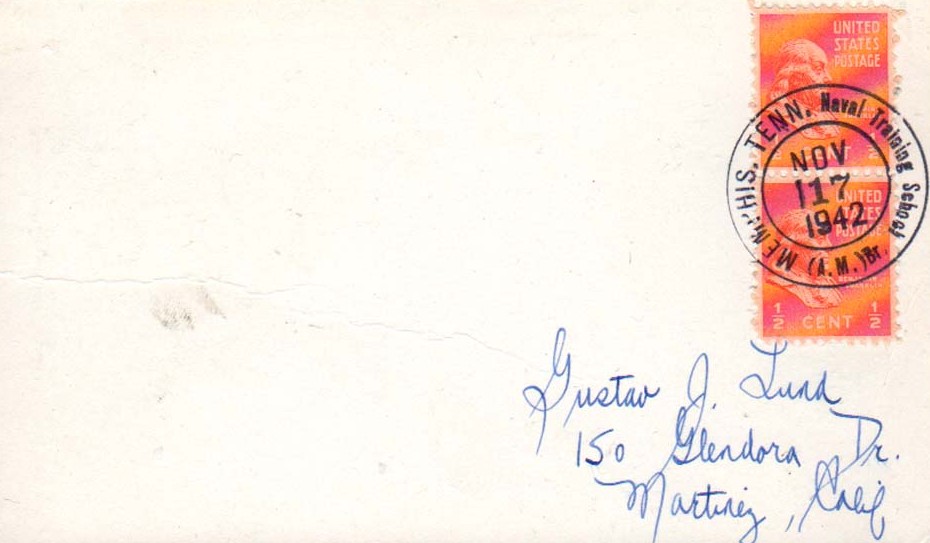 UNITED
STATES
POSTAGE
MEMPHIS, TENN. Naval Training School (A.M.) Br.
NOV
17
1942
UNITED
STATES
POSTAGE
1/2 CENT 1/2
Gustav J. Lund
150 Glendora Dr.
Martinez, Calif